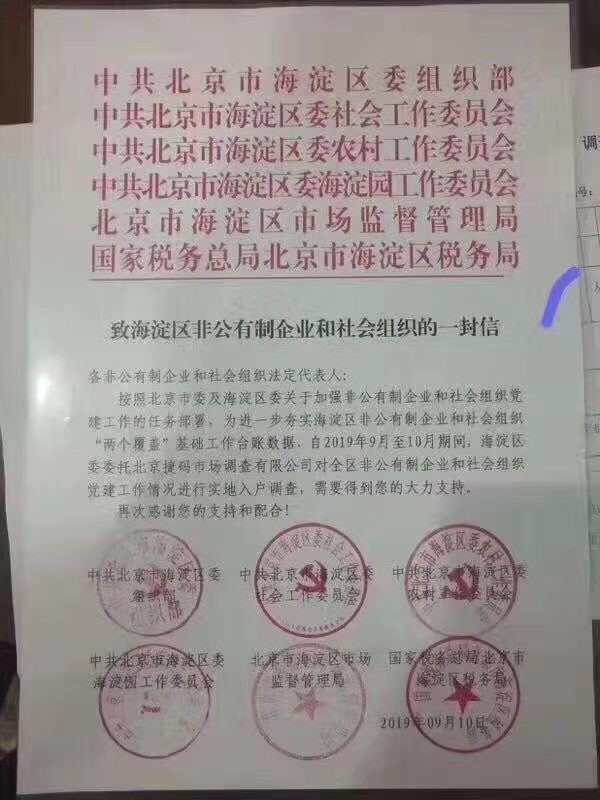 中共北京市海淀区委组织部
中共北京市海淀区委社会工作委员会
中共北京市海淀区委农村工作委员会
中共北京市海淀区委海淀园工作委员会
北京市海淀区市场监督管理局
国家税务总局北京市海淀区税务局
致海淀区非公有制企业和社会组织的一封信
各非公有制企业和社会组织法定代表人：
按照北京市委及海淀区委关于加强非公有制企业和社会组织党
建工作的任务部署，为进一步夯实海淀区非公有制企业和社会组织
“两个覆盖”基础工作台账数据，自2019年9月至10月期间，海淀区
委委托北京捷码市场调查有限公司对全区非公有制企业和社会组织
党建工作情况进行实地入户调查，需要得到您的大力支持。
再次感谢您的支持和配合！
中共北京市海淀区委
组织部
中共北京市海淀区委
社会工作委员会
中共北京市海淀区委
农村工作委员会
中共北京市海淀区委
海淀园工作委员会
北京市海淀区市场
监督管理局
国家税务总局北京市
海淀区税务局
2019年09月10日
调